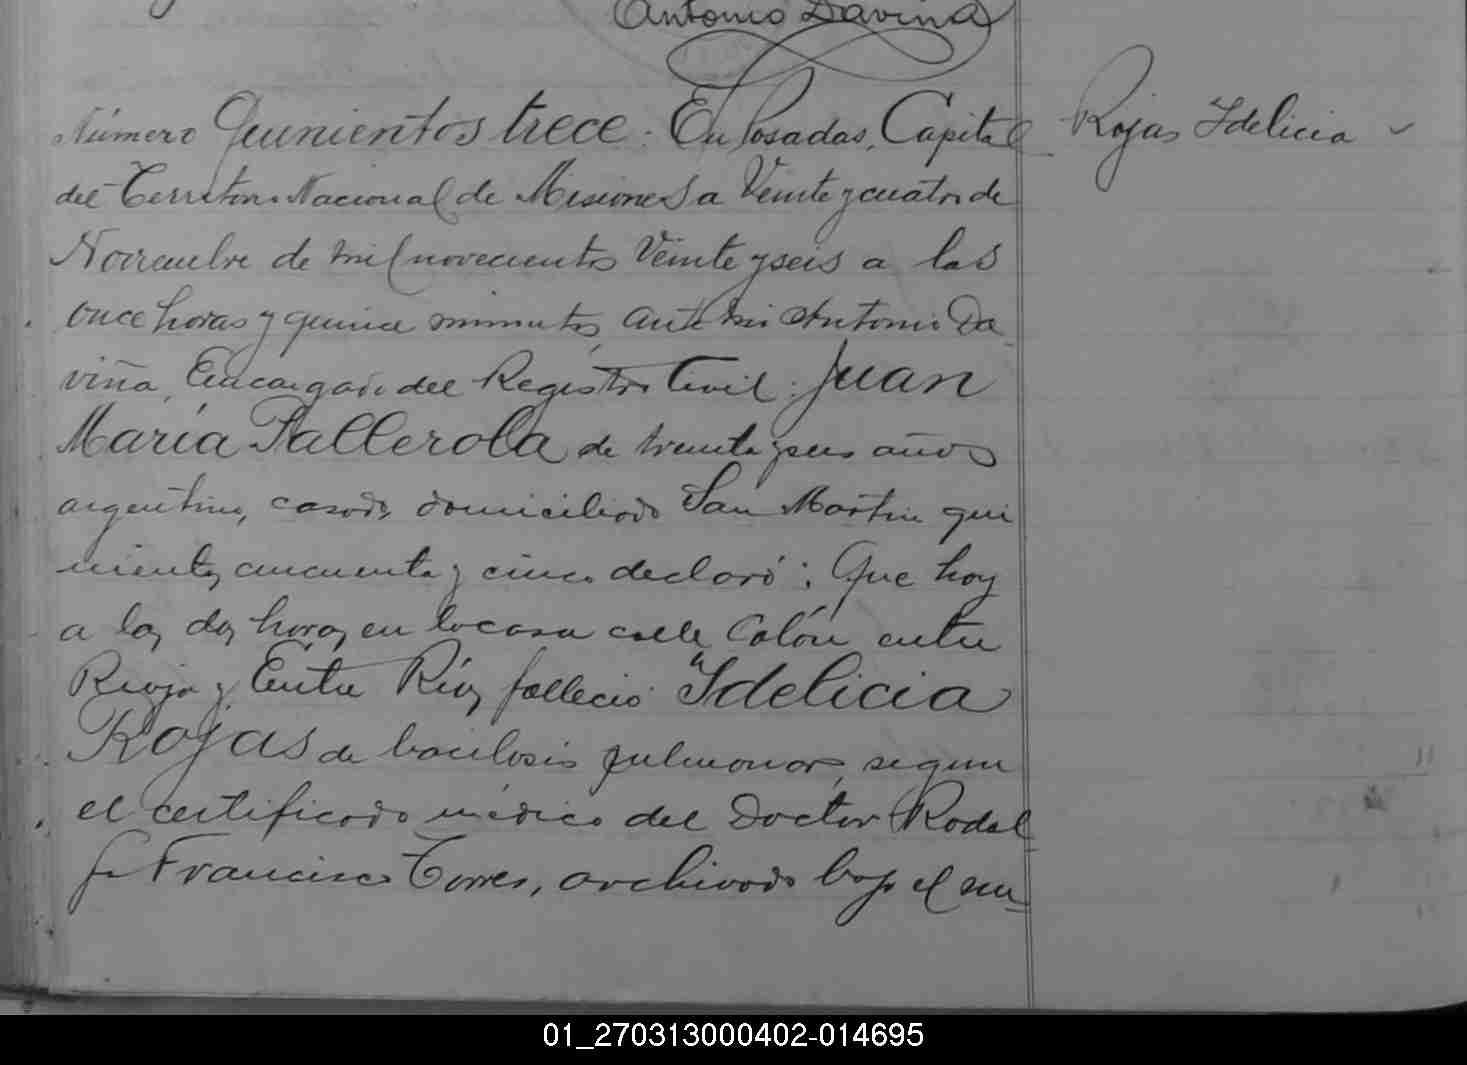 Antonio Daviña
Número Quinientos trece. En Posadas, Capital
Rojas Idelicia
del Territorio Nacional de Misiones a Veinte y cuatro de
Noviembre de mil novecientos Veinte y seis a las
once horas y quince minutos, ante mi Antonio Da-
viña, Encargado del Registro Civil: Juan
María Pallerola de treinta y seis años
argentino, casado, domiciliado San Martin qui
nientos cincuenta y cinco declaró: Que hoy
a las dos horas en la casa calle Colón entre
Rioja y Entre Ríos falleció "Idelicia
Rojas de bacilosis pulmonar, segun
el certificado médico del Doctor Rodol-
fo Francisco Torres, archivado bajo el nu-
01_270313000402-014695